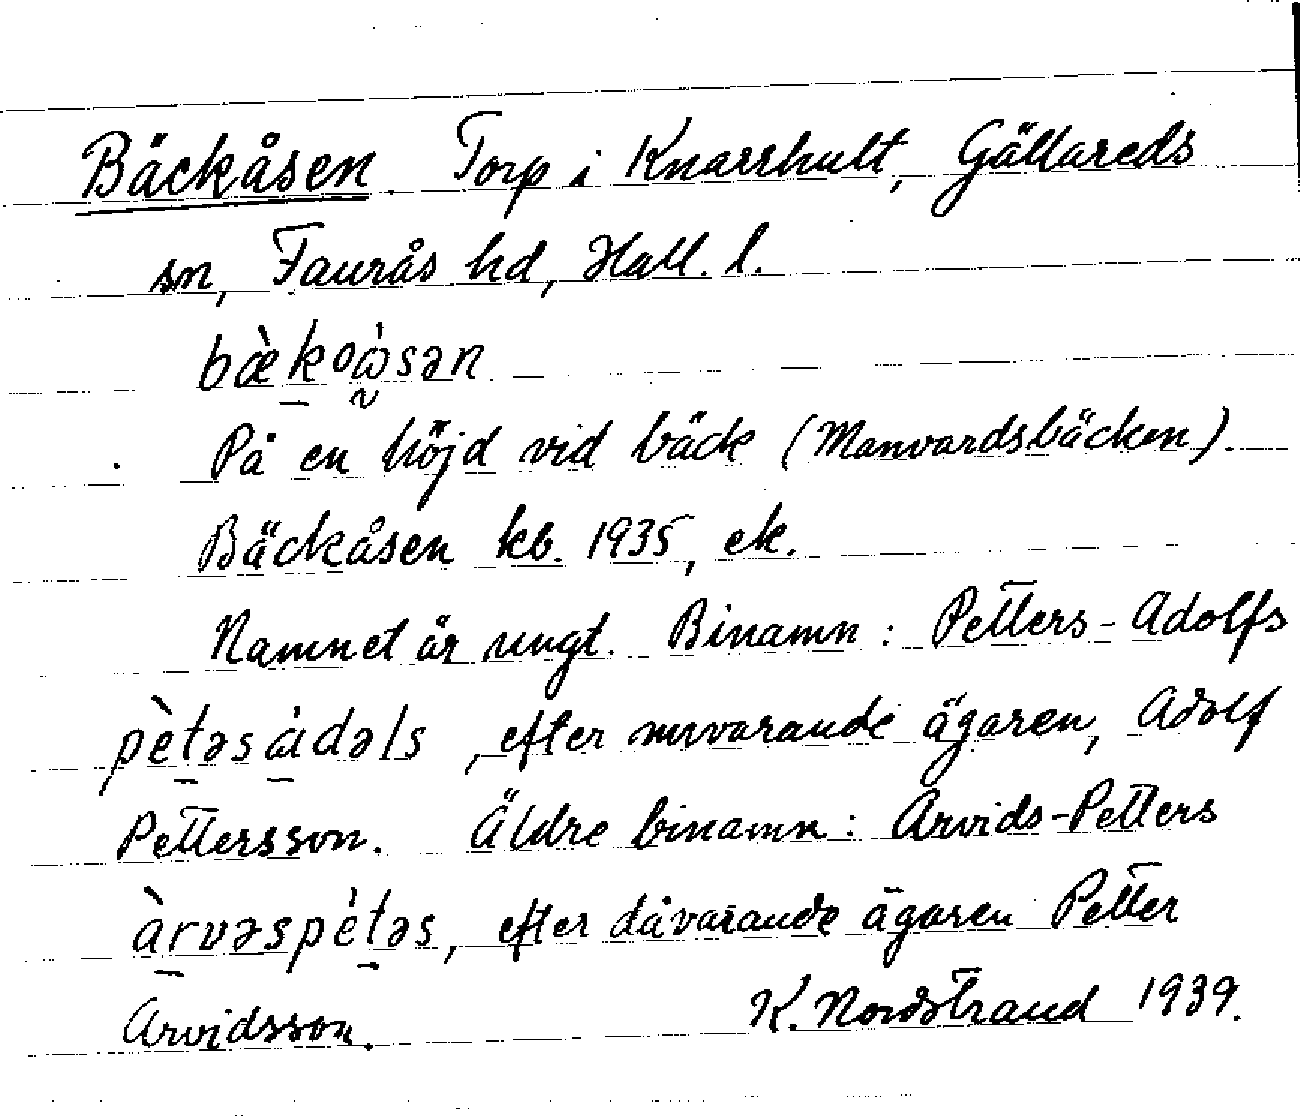 Bäckåsen. Torp i Knarrhult, Gällareds
sn, Faurås hd, Hall. l.
bæ̀koὼsən
På en höjd vid bäck (Manvardsbäcken).
Bäckåsen kb. 1935, ek.
Namnet är ungt. Binamn: Petters-Adolfs
pètəsàdəls, efter nuvarande ägaren, Adolf
Pettersson. Äldre binamn: Arvids-Petters
àrvəspètəs, efter dåvarande ägaren Petter
Arvidsson. K. Nordstrand 1939.